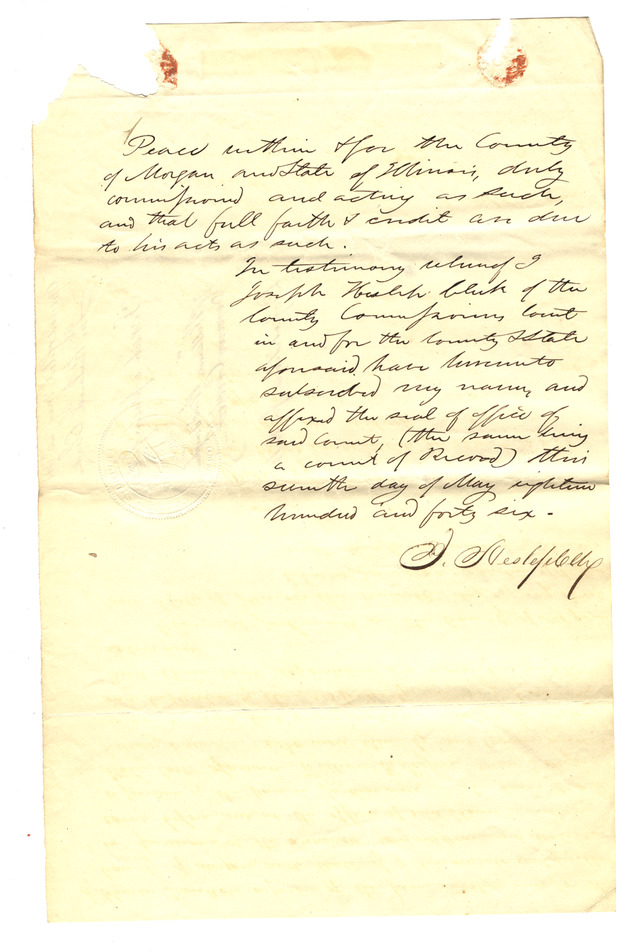 Peace within & for the County
of Morgan and State of Illinois, duly
commissioned and acting as such,
and that full faith & credit are due
to his acts as such.
In testimony whereof I
Joseph Heslep Clerk of the
County Commissioners Court
in and for the County & State
aforesaid, have hereunto
subscribed my name, and
affixed the seal of office of
said Court, (the same being
a court of Record) this
seventh day of May eighteen
hundred and forty six -
J. Heslep Clk